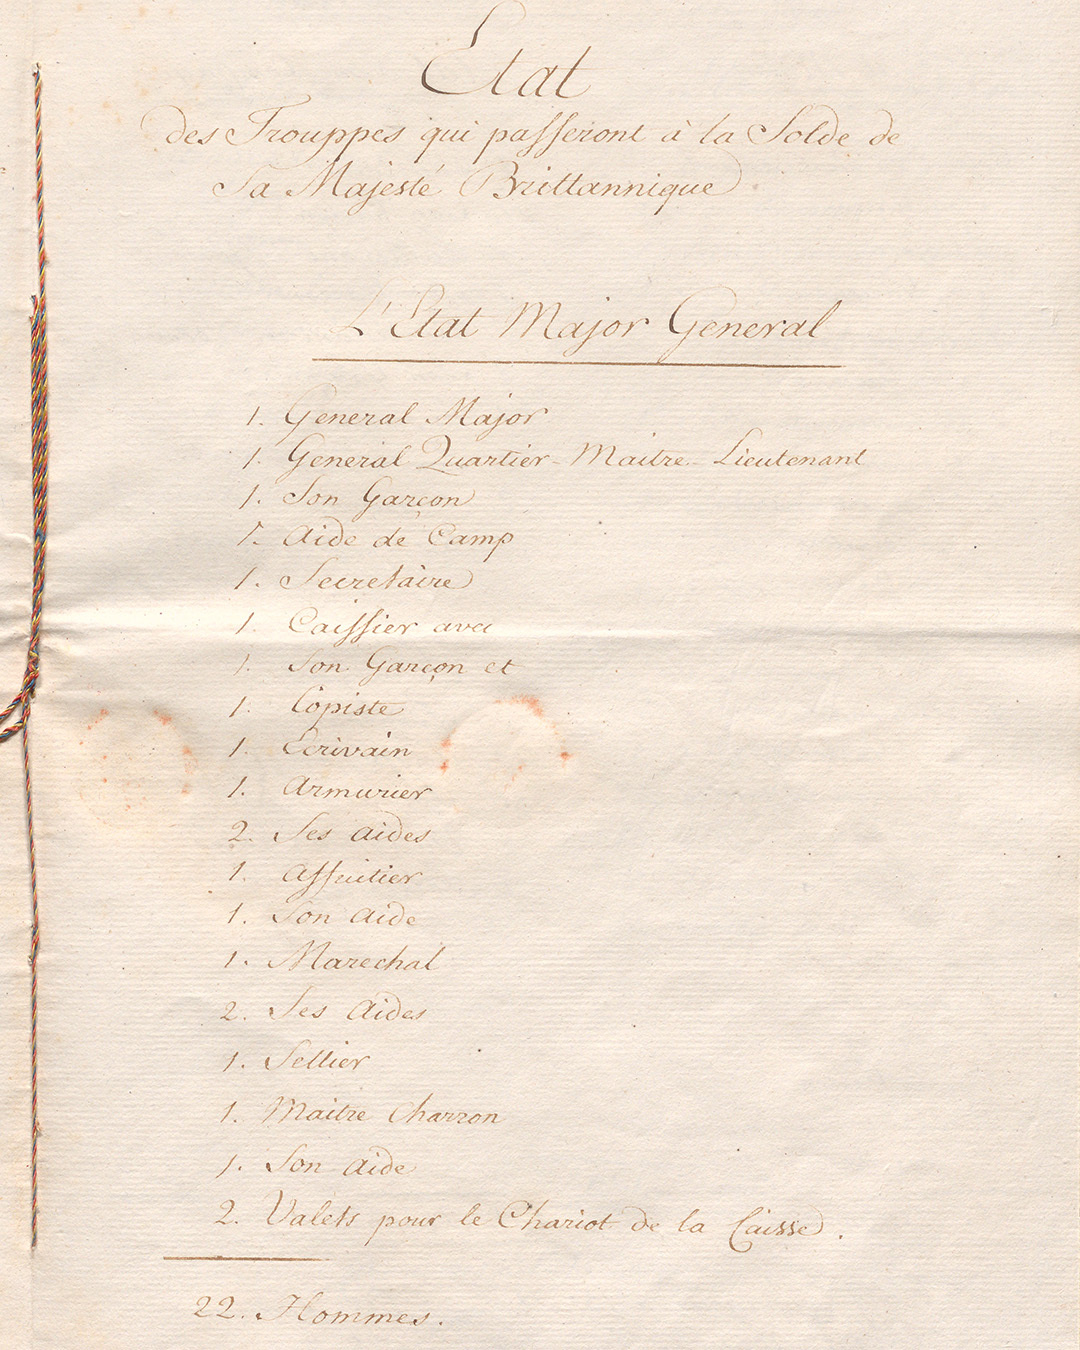 Etat
des Trouppes qui passeront à la Solde de
Sa Majesté Brittannique
L'Etat Major General
1. General Major
1. General Quartier-Maitre-Lieutenant
1. Son Garçon
1. Aide de Camp
1. Secretaire
1. Caissier avec
1. Son Garçon et
1. Copiste
1. Ecrivain
1. Armurier
2. Ses aides
1. Affutier
1. Son aide
1. Marechal
2. Ses Aides
1. Sellier
1. Maitre Charron
1. Son aide
2. Valets pour le Chariot de la Caisse.
22. Hommes.